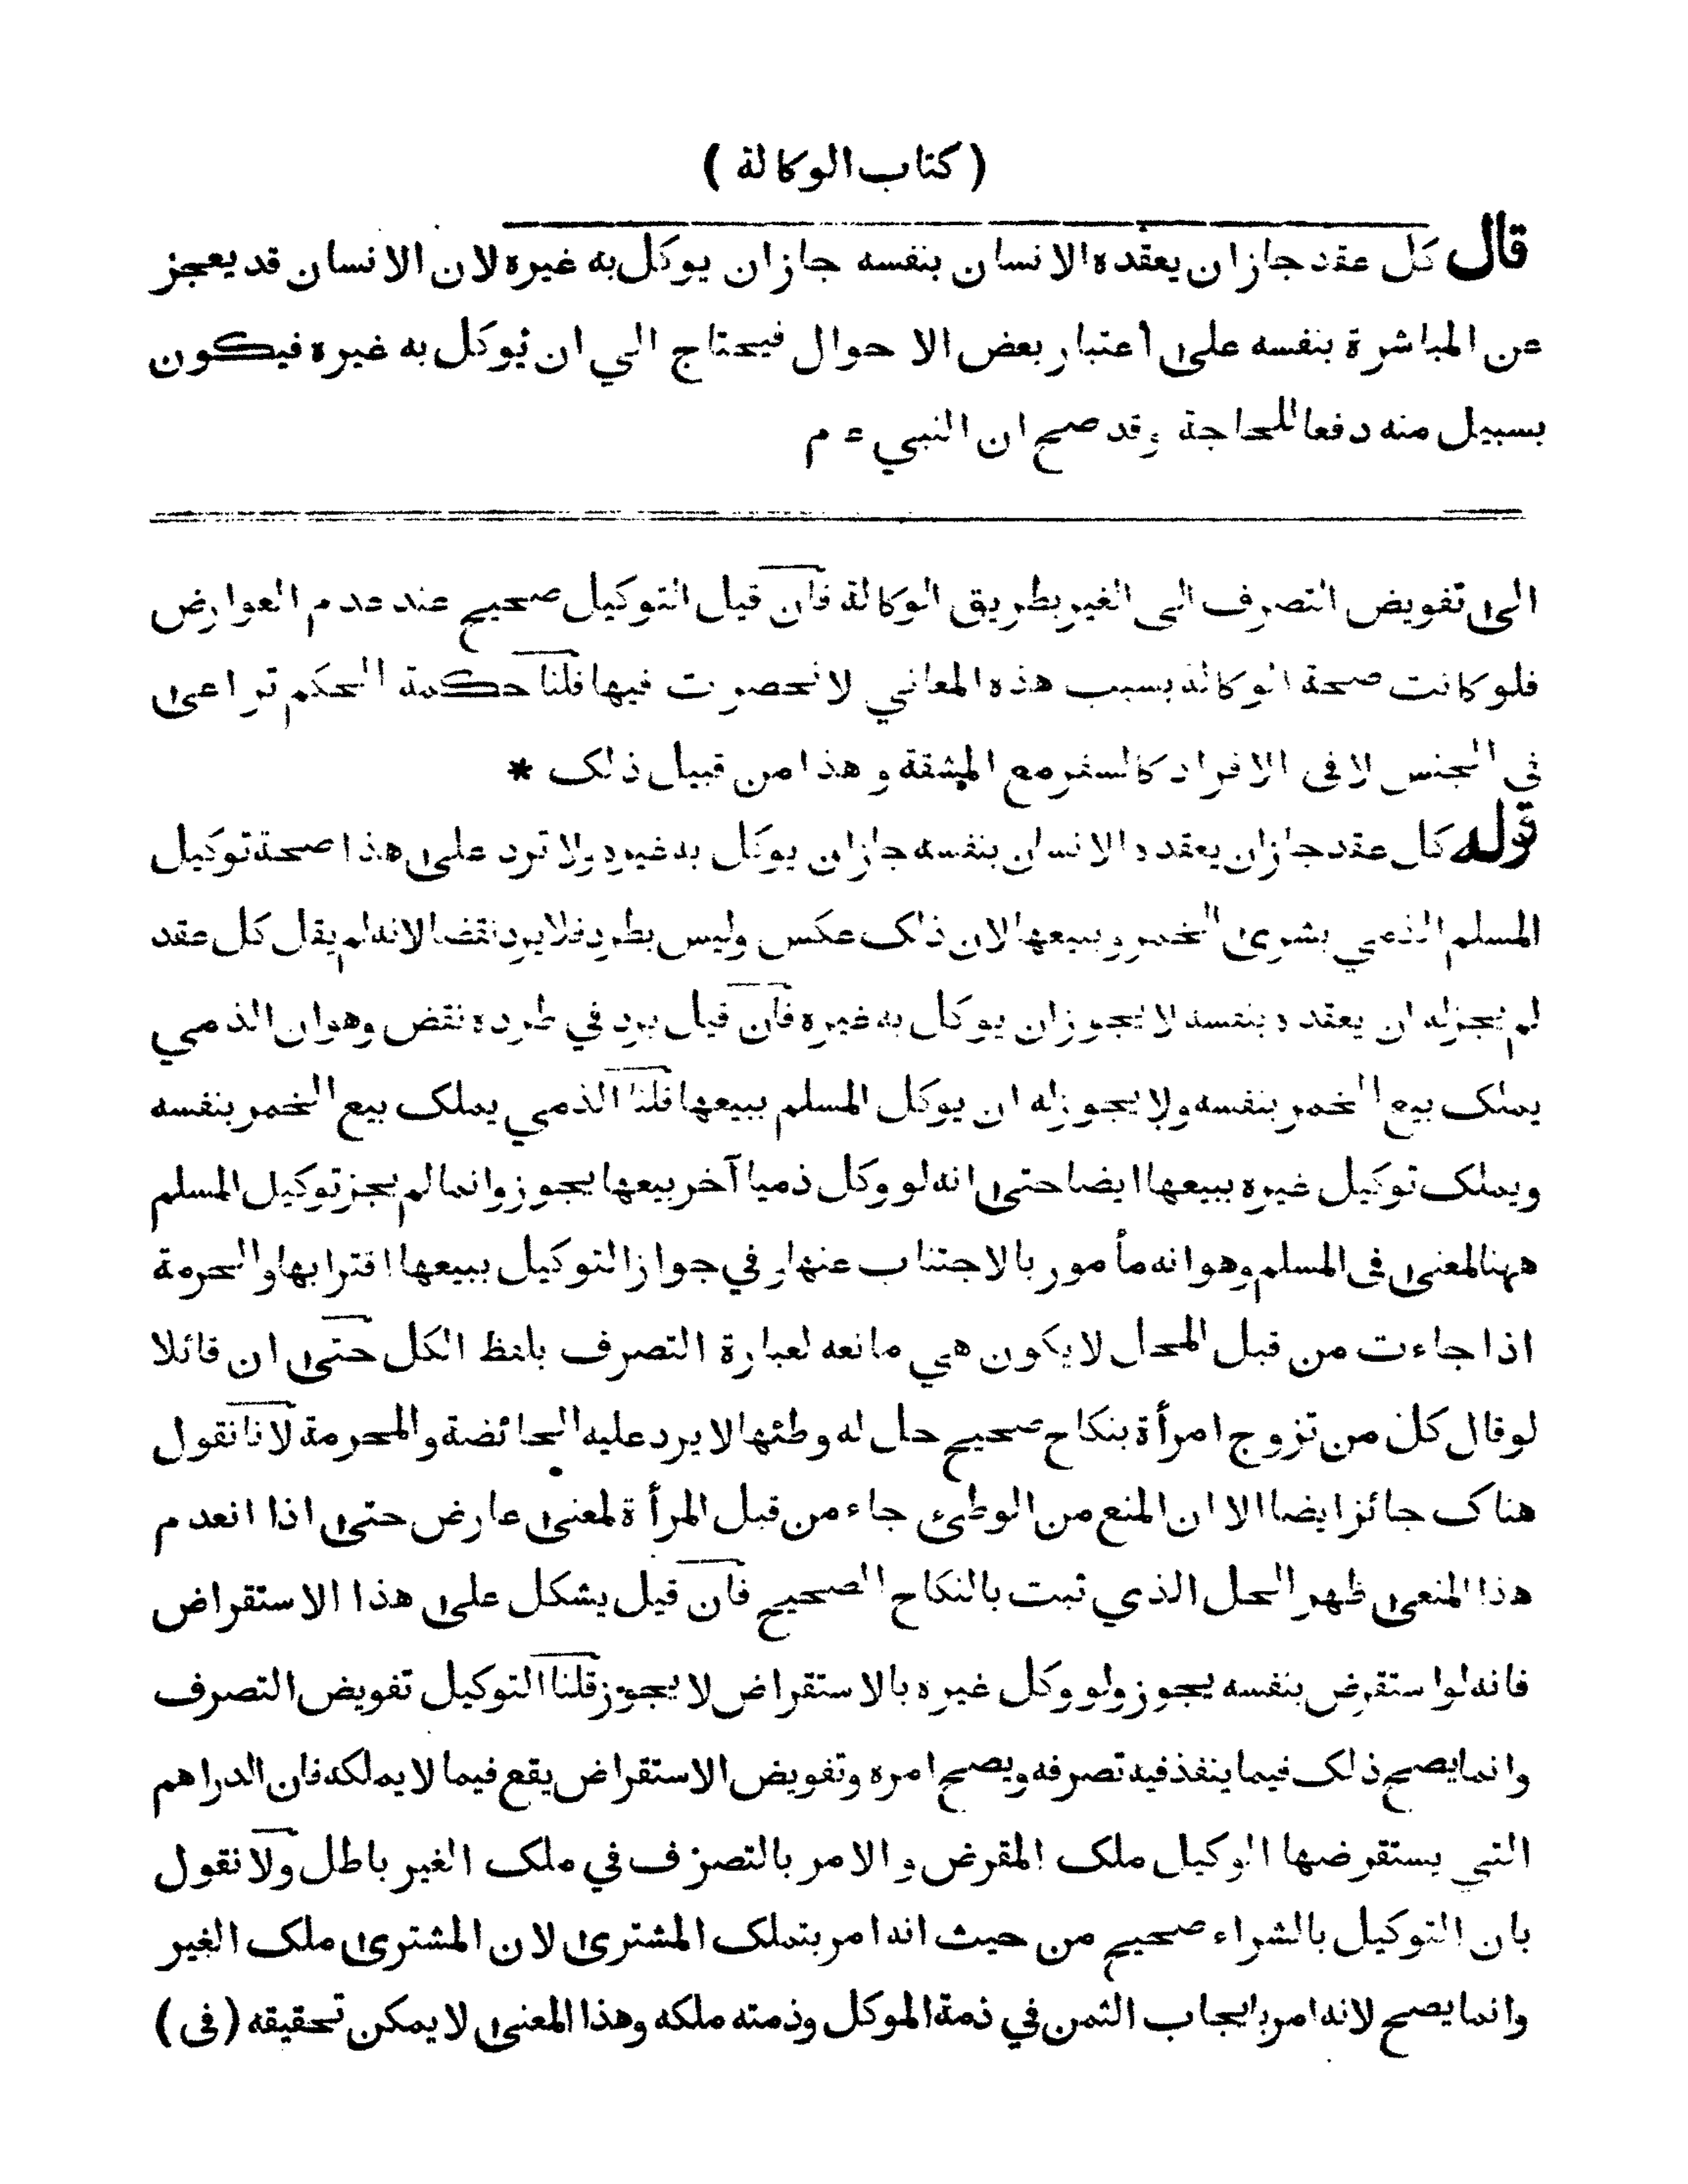 ( كتاب الوكالة )
قال كل عقد جاز ان يعقده الانسان بنفسه جاز ان يوكل به غيره لان الانسان قد يعجز
عن المباشرة بنفسه على اعتبار بعض الاحوال فيحتاج الي ان يوكل به غيره فيكون
بسبيل منه دفعا للحاجة وقد صح ان النبي ع م
الى تفويض التصرف الى الغير بطريق الوكالة فان قيل التوكيل صحيح عند عدم العوارض
فلو كانت صحة الوكالة بسبب هذه المعاني لانحصرت فيها قلنا حكمة الحكم تراعى
في الجنس لا فى الافراد كالسفر مع المشقة و هذا من قبيل ذلك *
قوله كل عقد جاز ان يعقده الانسان بنفسه جاز ان يوكل به غيره ولا ترد على هذا صحة توكيل
المسلم الذمي بشرى الخمر و بيعها لان ذلك عكس وليس بطرد فلا يرد نقضا لانه لم يقل كل عقد
لم يجز له ان يعقده بنفسه لا يجوز ان يوكل به غيره فان قيل يرد في طرده نقض وهو ان الذمي
يملك بيع الخمر بنفسه ولا يجوز له ان يوكل المسلم ببيعها قلنا الذمي يملك بيع الخمر بنفسه
ويملك توكيل غيره ببيعها ايضا حتى انه لو وكل ذميا آخر بيعها يجوز وانما لم يجز توكيل المسلم
ههنا لمعنى فى المسلم وهو انه مأمور بالاجتناب عنها و في جواز التوكيل ببيعها اقترابها والحرمة
اذا جاءت من قبل المحل لا يكون هي مانعه لعبارة التصرف بلفظ الكل حتى ان قائلا
لو قال كل من تزوج امرأة بنكاح صحيح حل له وطئها لا يرد عليه الحائضة والمحرمة لانا نقول
هناك جائز ايضا الا ان المنع من الوطئ جاء من قبل المرأة لمعنى عارض حتى اذا انعدم
هذا المنعى ظهر الحل الذي ثبت بالنكاح الصحيح فان قيل يشكل على هذا الاستقراض
فانه لو استقرض بنفسه يجوز ولو وكل غيره بالاستقراض لا يجوز قلنا التوكيل تفويض التصرف
وانما يصح ذلك فيما ينفذ فيه تصرفه ويصح امره وتفويض الاستقراض يقع فيما لا يملكه فان الدراهم
التي يستقرضها الوكيل ملك المقرض و الامر بالتصرف في ملك الغير باطل ولا نقول
بان التوكيل بالشراء صحيح من حيث انه امر بتملك المشترى لان المشترى ملك الغير
وانما يصح لانه امر بايجاب الثمن في ذمة الموكل وذمته ملكه وهذا المعنى لا يمكن تحقيقه (فى)